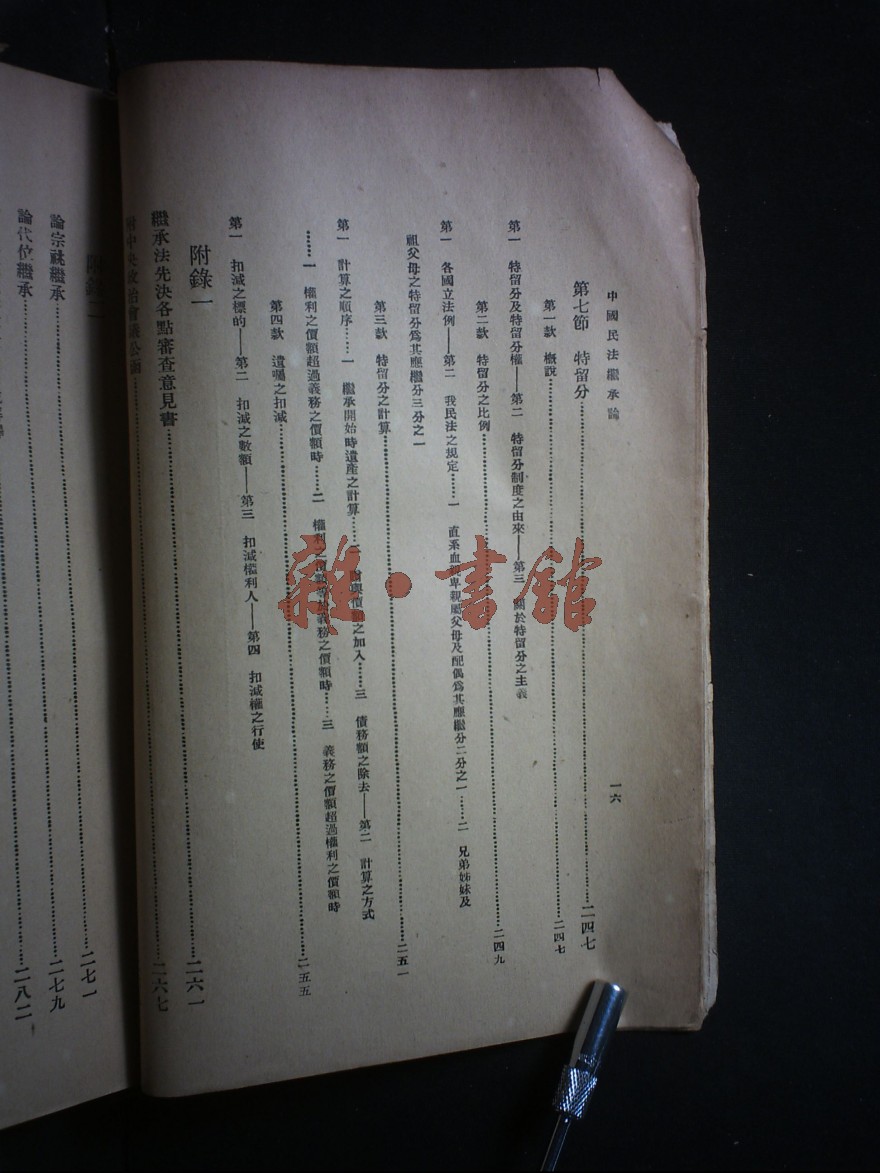 中國民法繼承論 一六
第七節 特留分……二四七
第一款 概說……二四七
第一 特留分及特留分權——第二 特留分制度之由來——第三 關於特留分之主義
第二款 特留分之比例……二四九
第一 各國立法例——第二 我民法之規定……一 直系血親卑親屬父母及配偶爲其應繼分二分之一……二 兄弟姊妹及
祖父母之特留分爲其應繼分三分之一
第三款 特留分之計算……二五一
第一 計算之順序……一 繼承開始時遺產之計算……二 贈與價額之加入……三 債務額之除去——第二 計算之方式
……一 權利之價額超過義務之價額時……二 權利之價額等於義務之價額時……三 義務之價額超過權利之價額時
第四款 遺囑之扣減……二五五
第一 扣減之標的——第二 扣減之數額——第三 扣減權利人——第四 扣減權之行使
附錄一 二六一
繼承法先決各點審查意見書……二六七
附中央政治會議公函……
附錄二 二七一
論宗祧繼承……二七九
論代位繼承……二八二
雜·書館